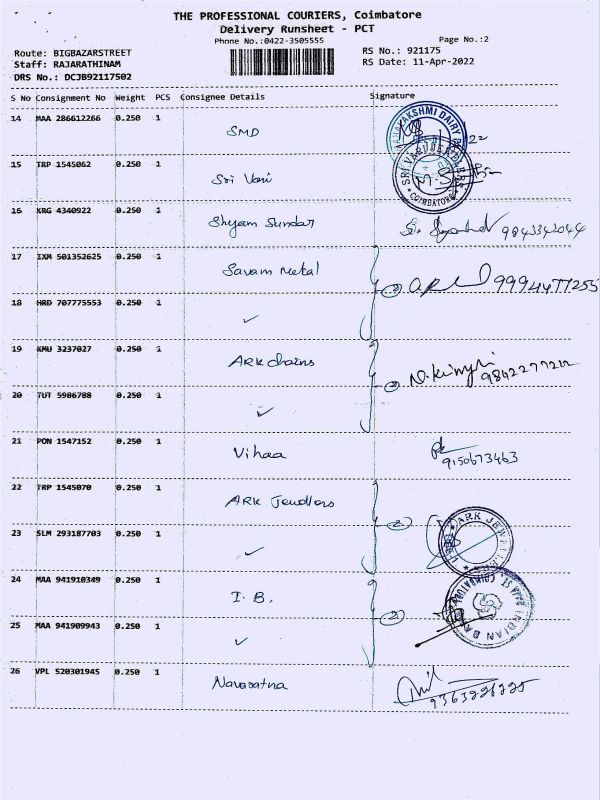 THE PROFESSIONAL COURIERS, Coimbatore
Delivery Runsheet - PCT
Phone No.:0422-3505555
Page No.:2
Route: BIGBAZARSTREET
RS No.: 921175
Staff: RAJARATHINAM
RS Date: 11-Apr-2022
DRS No.: DCJB92117502
S No Consignment No Weight PCS Consignee Details Signature
14 MAA 286612266 0.250 1 SMD
15 TRP 1545062 0.250 1 Sri Vari
16 KRG 4340922 0.250 1 Shyam Sundar 9843342044
17 IXM 501352625 0.250 1 Savam Metal 2 9994477255
18 HRD 707775553 0.250 1 ✓
19 KMU 3237027 0.250 1 ARK chains 2
20 TUT 5986788 0.250 1 ✓
21 PON 1547152 0.250 1 Vihaa 9150673463
22 TRP 1545070 0.250 1 ARK Jewellers 2
ARK JEWELLERS
23 SLM 293187703 0.250 1 ✓
24 MAA 941910349 0.250 1 I.B. 2
INDIAN BANK
25 MAA 941909943 0.250 1 ✓
26 VPL 520301945 0.250 1 Navaratna